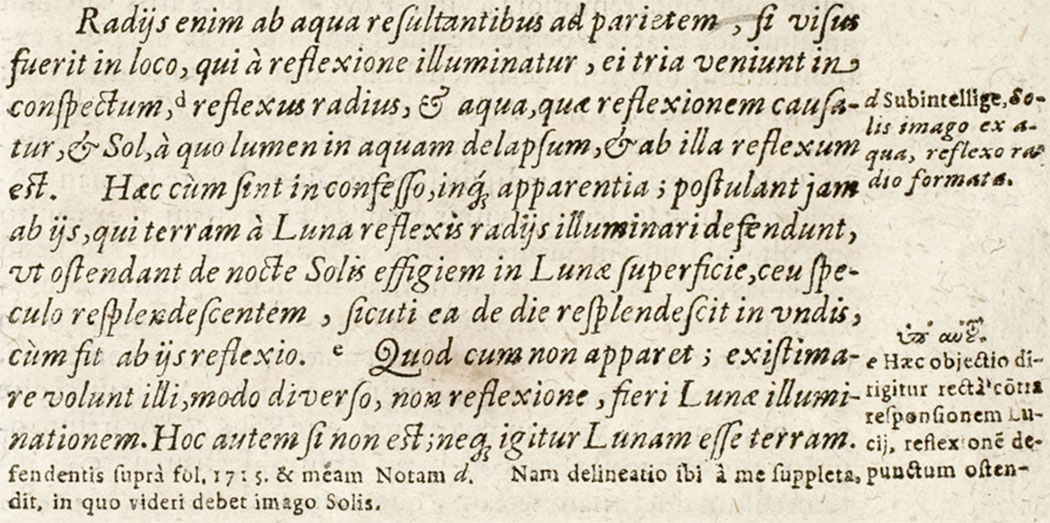 Radijs enim ab aqua reſultantibus ad parietem, ſi viſus
fuerit in loco, qui à reflexione illuminatur, ei tria veniunt in
conſpectum, d reflexus radius, & aqua, quæ reflexionem cauſa-
tur, & Sol, à quo lumen in aquam delapſum, & ab illa reflexum
eſt. Hæc cùm ſint in confeſſo, inq́; apparentia; poſtulant jam
ab ijs, qui terram à Luna reflexis radijs illuminari defendunt,
vt oſtendant de nocte Solis effigiem in Lunæ ſuperficie, ceu ſpe-
culo reſplendeſcentem, ſicuti ea de die reſplendeſcit in vndis,
cùm fit ab ijs reflexio. e Quod cum non apparet; exiſtima-
re volunt illi, modo diverſo, non reflexione, fieri Lunæ illumi-
nationem. Hoc autem ſi non eſt; neq́; igitur Lunam eſſe terram.
d Subintellige, So-
lis imago ex a-
qua, reflexo ra-
dio formata.
e Hæc objectio di-
rigitur rectà cōtra
reſponſionem Lu-
cij, reflexionē de-
fendentis ſuprà fol. 1715. & meam Notam d. Nam delineatio ibi à me ſuppleta, punctum oſten-
dit, in quo videri debet imago Solis.